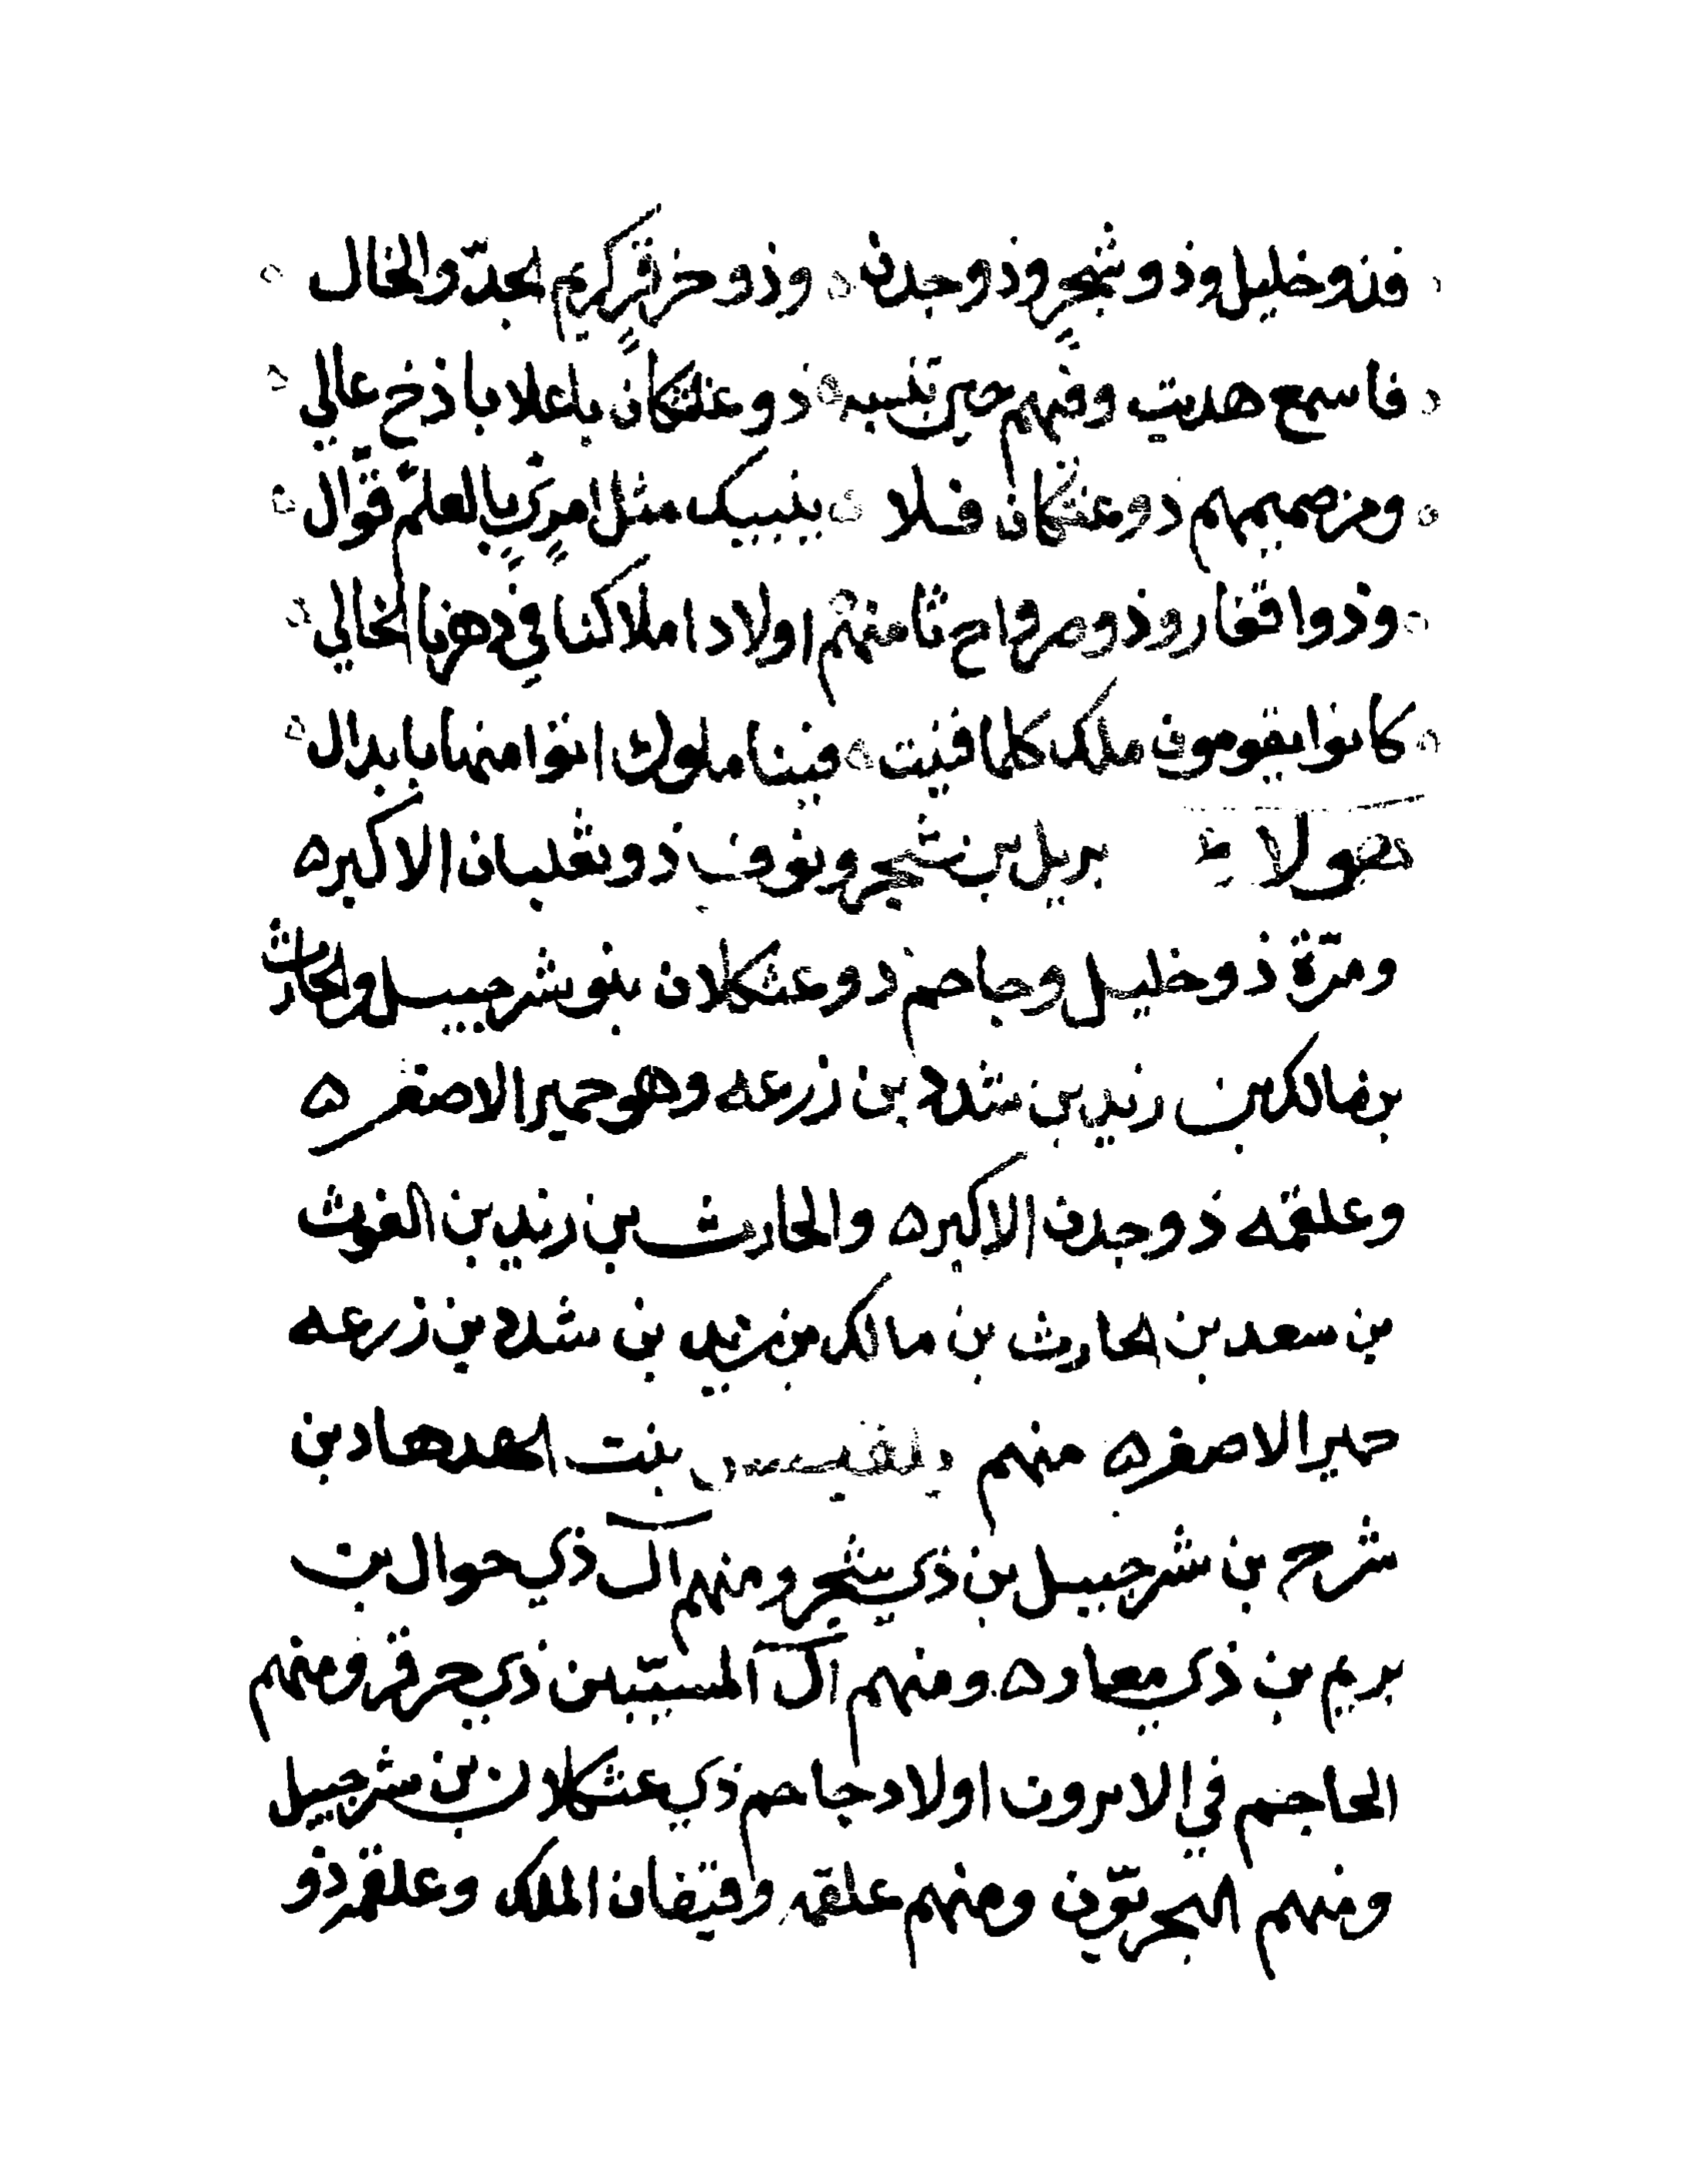 فذو خليل وذو شجر وذو جدن ٥ وذو حزفر كريم الجدّ والخال
فاسمع هديت وفهم حين تنسبه ٥ ذو عثكلان باعلا باذخ عالي
ومن صميمهم ذو عثكلان فلا ٥ ينبيك مثل امرئ بالعلم قوّال
وذوا قفار وذو صرواح ثامنهم اولاد املاكنا في دهرنا الخالي
كانوا يقومون ملك كلما فنيت ٥ فينا ملوك اتوا منها بابدال
هولا بريل بن شجر ونوف ذو ثعلبان الاكبر ٥
ومرّة ذو خليل وجاحم ذو عثكلان بنو شرحبيل والحارث
بن مالك بن زيد بن شدد بن زرعه وهو حمير الاصغر ٥
وعلقمه ذو جدن الاكبر ٥ والحارث بن زيد بن الغوث
بن سعد بن الحارث بن مالك بن زيد بن شدد بن زرعه
حمير الاصغر ٥ منهم بلقيس بنت الهدهاد بن
شرح بن شرحبيل بن ذي شجر ومنهم ال ذي حوال بن
بريم بن ذي معار ٥ ومنهم ال المسيّب بن ذي حزفر ومنهم
الجاحم في الابرون اولاد جاحم ذي عثكلان بن شرحبيل
ومنهم البحريّون ومنهم علقمه وقيفان الملك وعلقمه ذو